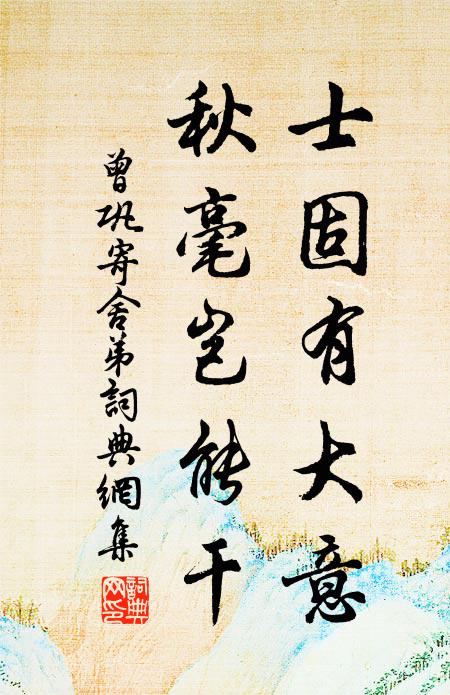 士固有大意
秋毫岂能干
曾巩寄舍弟詞典網集
詞典网印